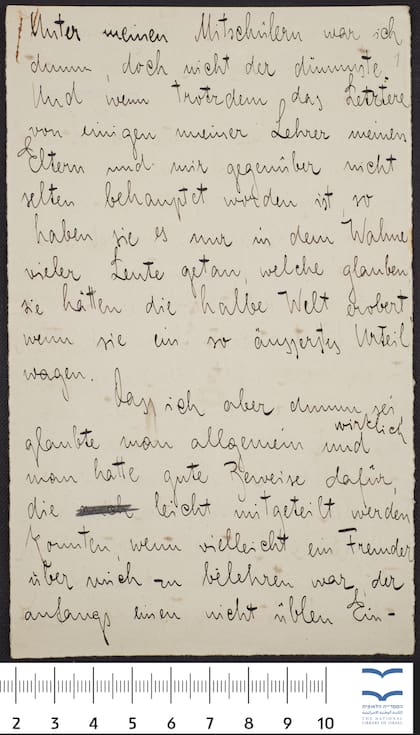 Unter meinen Mitschülern war ich
dumm, doch nicht der dümmste.
Und wenn trotzdem das Letztere
von einigen meiner Lehrer meinen
Eltern und mir gegenüber nicht
selten behauptet worden ist, so
haben sie es nur in dem Wahne
vieler Leute getan, welche glauben
sie hätten die halbe Welt erobert
wenn sie ein so äusserstes Urteil
wagen.
Dass ich aber dumm sei
glaubte man allgemein und wirklich
man hatte gute Beweise dafür,
die leicht mitgeteilt werden
konnten, wenn vielleicht ein Fremder
über mich zu belehren war, der
anfangs einen nicht üblen Ein-
2 3 4 5 6 7 8 9 10
הספרייה הלאומית
THE NATIONAL
LIBRARY OF ISRAEL